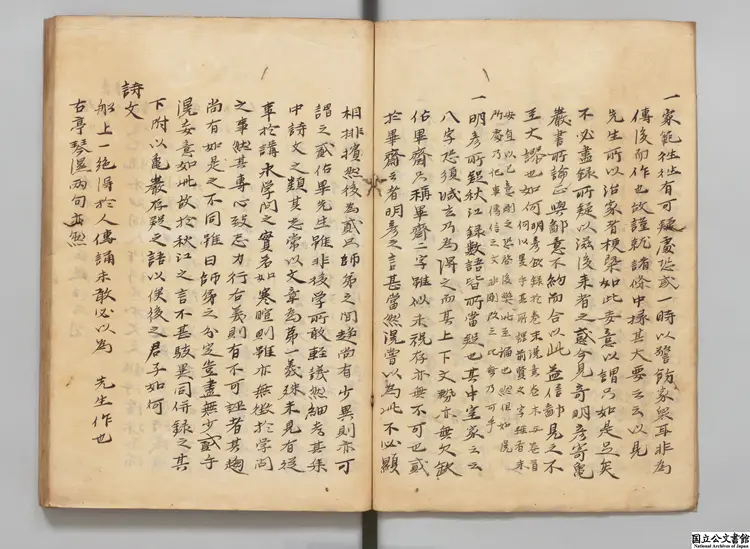 一家範往往有可疑處恐或一時以警飭家衆耳非為
傳後而作也故謹就諸條中採其大要云云以見
先生所以治家者梗槩如此妄意以謂只如是足矣
不必盡錄所疑以滋後來者之惑今見寄明彥寄亀
巖書所論正與鄙意不約而合以此益信鄙見之不
至大謬也如何
一明彥所疑秋江録數語皆所當疑也其中室家云云
八字恐須滅去乃為得之而其上下文勢亦無欠缺
佔畢齋只稱畢齋二字雖似未祝存亦無不可也或
於畢齋云者明彥之言甚當然滉嘗以為此不必顯
相排擯然後為貳只師弟之間趍尚有少異則亦可
謂之貳佔畢先生雖非後學所敢輕議然細考其集
中詩文之類其志常以文章為第一義殊未見有從
事於講求學問之實若如寒暄則雖亦無徵於學問
之事然其專心致志力行古義則有不可誣者其趨
尚有如是之不同雖曰師弟之分定豈盡無少貳乎
滉妄意如此故於秋江之言不甚駭異同併錄之其
下附以亀巖存疑之語以俟後之君子如何
詩文
船上一絶得於人傳誦未敢必以為 先生作也
古亭琴湿两句亦然
国立公文書館
National Archives of Japan